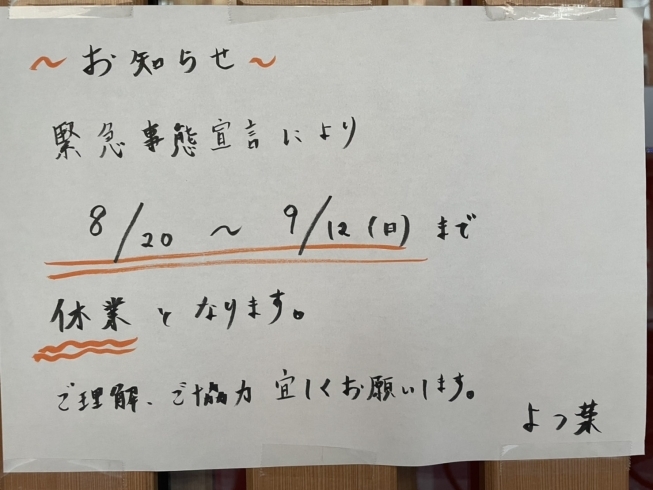 ～お知らせ～
緊急事態宣言により
8/20 ～ 9/12(日)まで
休業となります。
ご理解、ご協力宜しくお願いします。
よつ葉